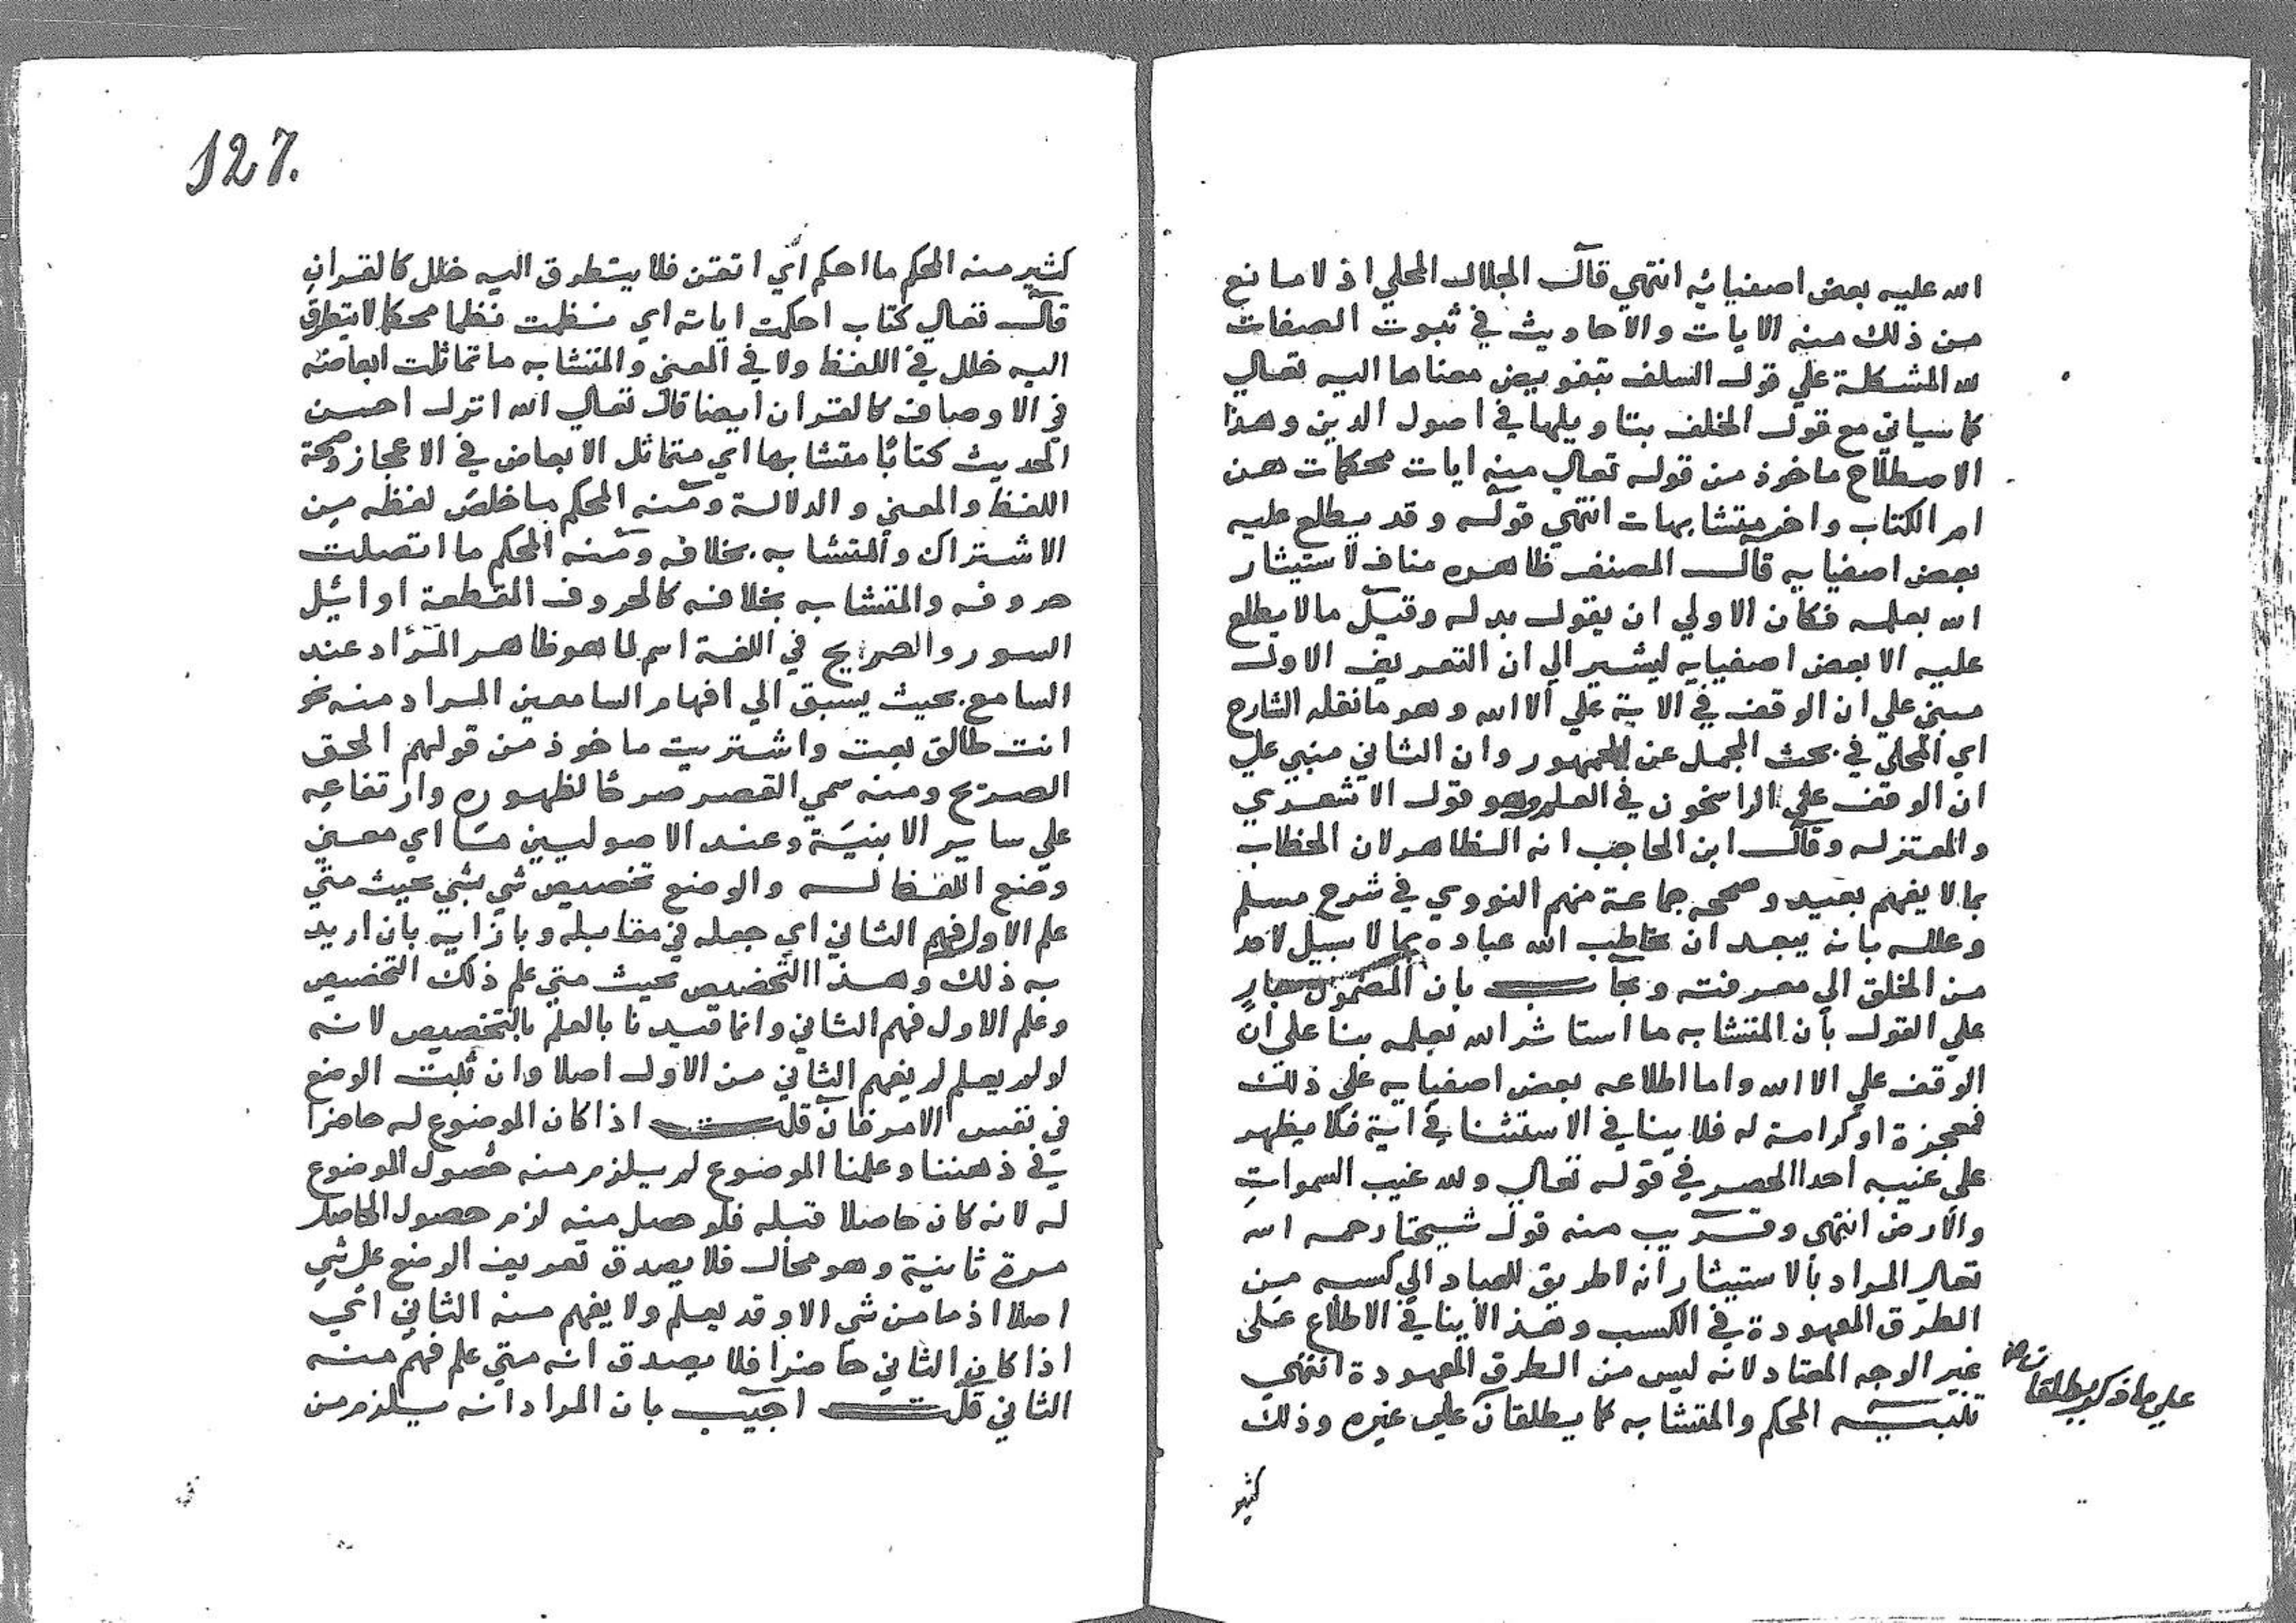 الله عليه بعض اصفيائه انتهي قال الجلال المحلي اذ لا مانع
من ذلك منه الايات والاحاديث في ثبوت الصفات
لله المشكلة علي قول السلف بتفويض معناها اليه تعالي
كما سياتي مع قول الخلف بتاويلها في اصول الدين وهذا
الاصطلاح ماخوذ من قوله تعالي منه ايات محكمات هن
ام الكتاب واخر متشابهات انتهي قوله وقد يطلع عليه
بعض اصفيايه قال المصنف ظاهره مناف لاستيثار
الله بعلمه فكان الاولي ان يقول بدله وقيل ما لا يطلع
عليه الا بعض اصفيايه ليشير الي ان التعريف الاول
مبني علي ان الوقف في الاية علي الا الله وهو ما نقله الشارح
اي المحلي في بحث المجمل عن الجمهور وان الثاني منبي علي
ان الوقف علي الراسخون في العلم وهو قول الاشعري
والمعتزله وقال ابن الحاجب انه الظاهر لان الخطاب
بما لا يفهم بعيد وصححه جماعة منهم النووي في شرح مسلم
وعلله بانه يبعد ان يخاطب الله عباده بما لا سبيل لاحد
من الخلق الي معرفته ويجاب بان المصنف جار
علي القول بان المتشابه ما استاثر الله بعلمه بنا علي ان
الوقف علي الا الله واما اطلاعه بعض اصفيايه علي ذلك
فمعجزة او كرامة له فلا ينافي الاستثنا في اية فلا يظهر
علي غيبه احدا الحصر في قوله تعالي ولله غيب السموات
والارض انتهي وقريب منه قول شيخنا رحمه الله
تعالي المراد بالاستيثار انه لا طريق للعباد الي كسبه من
الطرق المعهودة في الكسب وهذا لا ينافي الاطلاع علي
غير الوجه المعتاد لانه ليس من الطرق المعهودة انتهي
تنبيه المحكم والمتشابه كما يطلقان علي غيره وذلك
علي ما ذكر يطلقان
كثير
127.
كثير منه المحكم ما احكم اي اتقن فلا يتطرق اليه خلل كالقران
قال تعالي كتاب احكمت اياته اي نظمت نظما محكما لا يتطرق
اليه خلل في اللفظ ولا في المعني والمتشابه ما تماثلت ابعاضه
في الاوصاف كالقران ايضا قال تعالي الله انزل احسن
الحديث كتابا متشابها اي متماثل الابعاض في الاعجاز وصحة
اللفظ والمعني والدلالة ومنه المحكم ما خلص لفظه من
الاشتراك والمتشابه بخلافه ومنه المحكم ما اتصلت
حروفه والمتشابه بخلافه كالحروف المقطعة اوائل
السور والصريح في اللغة اسم لما هو ظاهر المراد عند
السامع بحيث يسبق الي افهام السامعين المراد منه نحو
انت طالق بعت واشتريت ماخوذ من قولهم الحق
الصريح ومنه سمي القصر صرحا لظهوره وارتفاعه
علي ساير الابنية وعند الاصوليين ما اي معني
وضع اللفظ له والوضع تخصيص شي بشي بحيث متي
علم الاول فهم الثاني اي جعله في مقابله وبازايه بان اريد
به ذلك وهذا التخصيص بحيث متي علم ذلك التخصيص
وعلم الاول فهم الثاني وانما قيدنا بالعلم بالتخصيص لانه
لو لم يعلم لم يفهم الثاني من الاول اصلا وان ثبت الوضع
في نفس الامر فان قلت اذا كان الموضوع له حاضرا
في ذهننا وعلمنا الموضوع لم يلزم منه حصول الموضوع
له لانه كان حاصلا قبله فلو حصل منه لزم حصول الحاصل
مرة ثانية وهو محال فلا يصدق تعريف الوضع علي شي
اصلا اذ ما من شي الا وقد يعلم ولا يفهم منه الثاني اي
اذا كان الثاني حاضرا فلا يصدق انه متي علم فهم منه
الثاني قلت اجيب بان المراد انه يلزم من